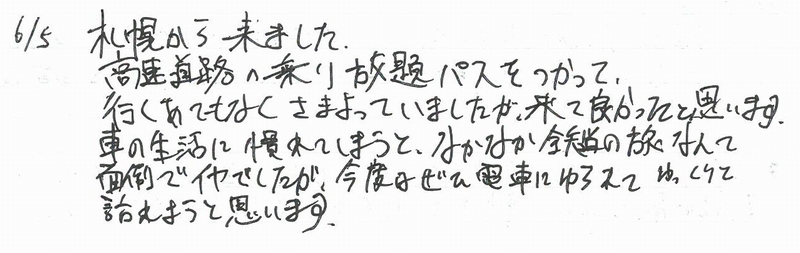 6/5 札幌から来ました.
高速道路の乗り放題パスをつかって、
行くあてもなくさまよっていましたが、来て良かったと思います.
車の生活に慣れてしまうと、なかなか全線の旅なんて
面倒でイヤでしたが、今度はぜひ電車にゆられてゆっくりと
訪れようと思います.